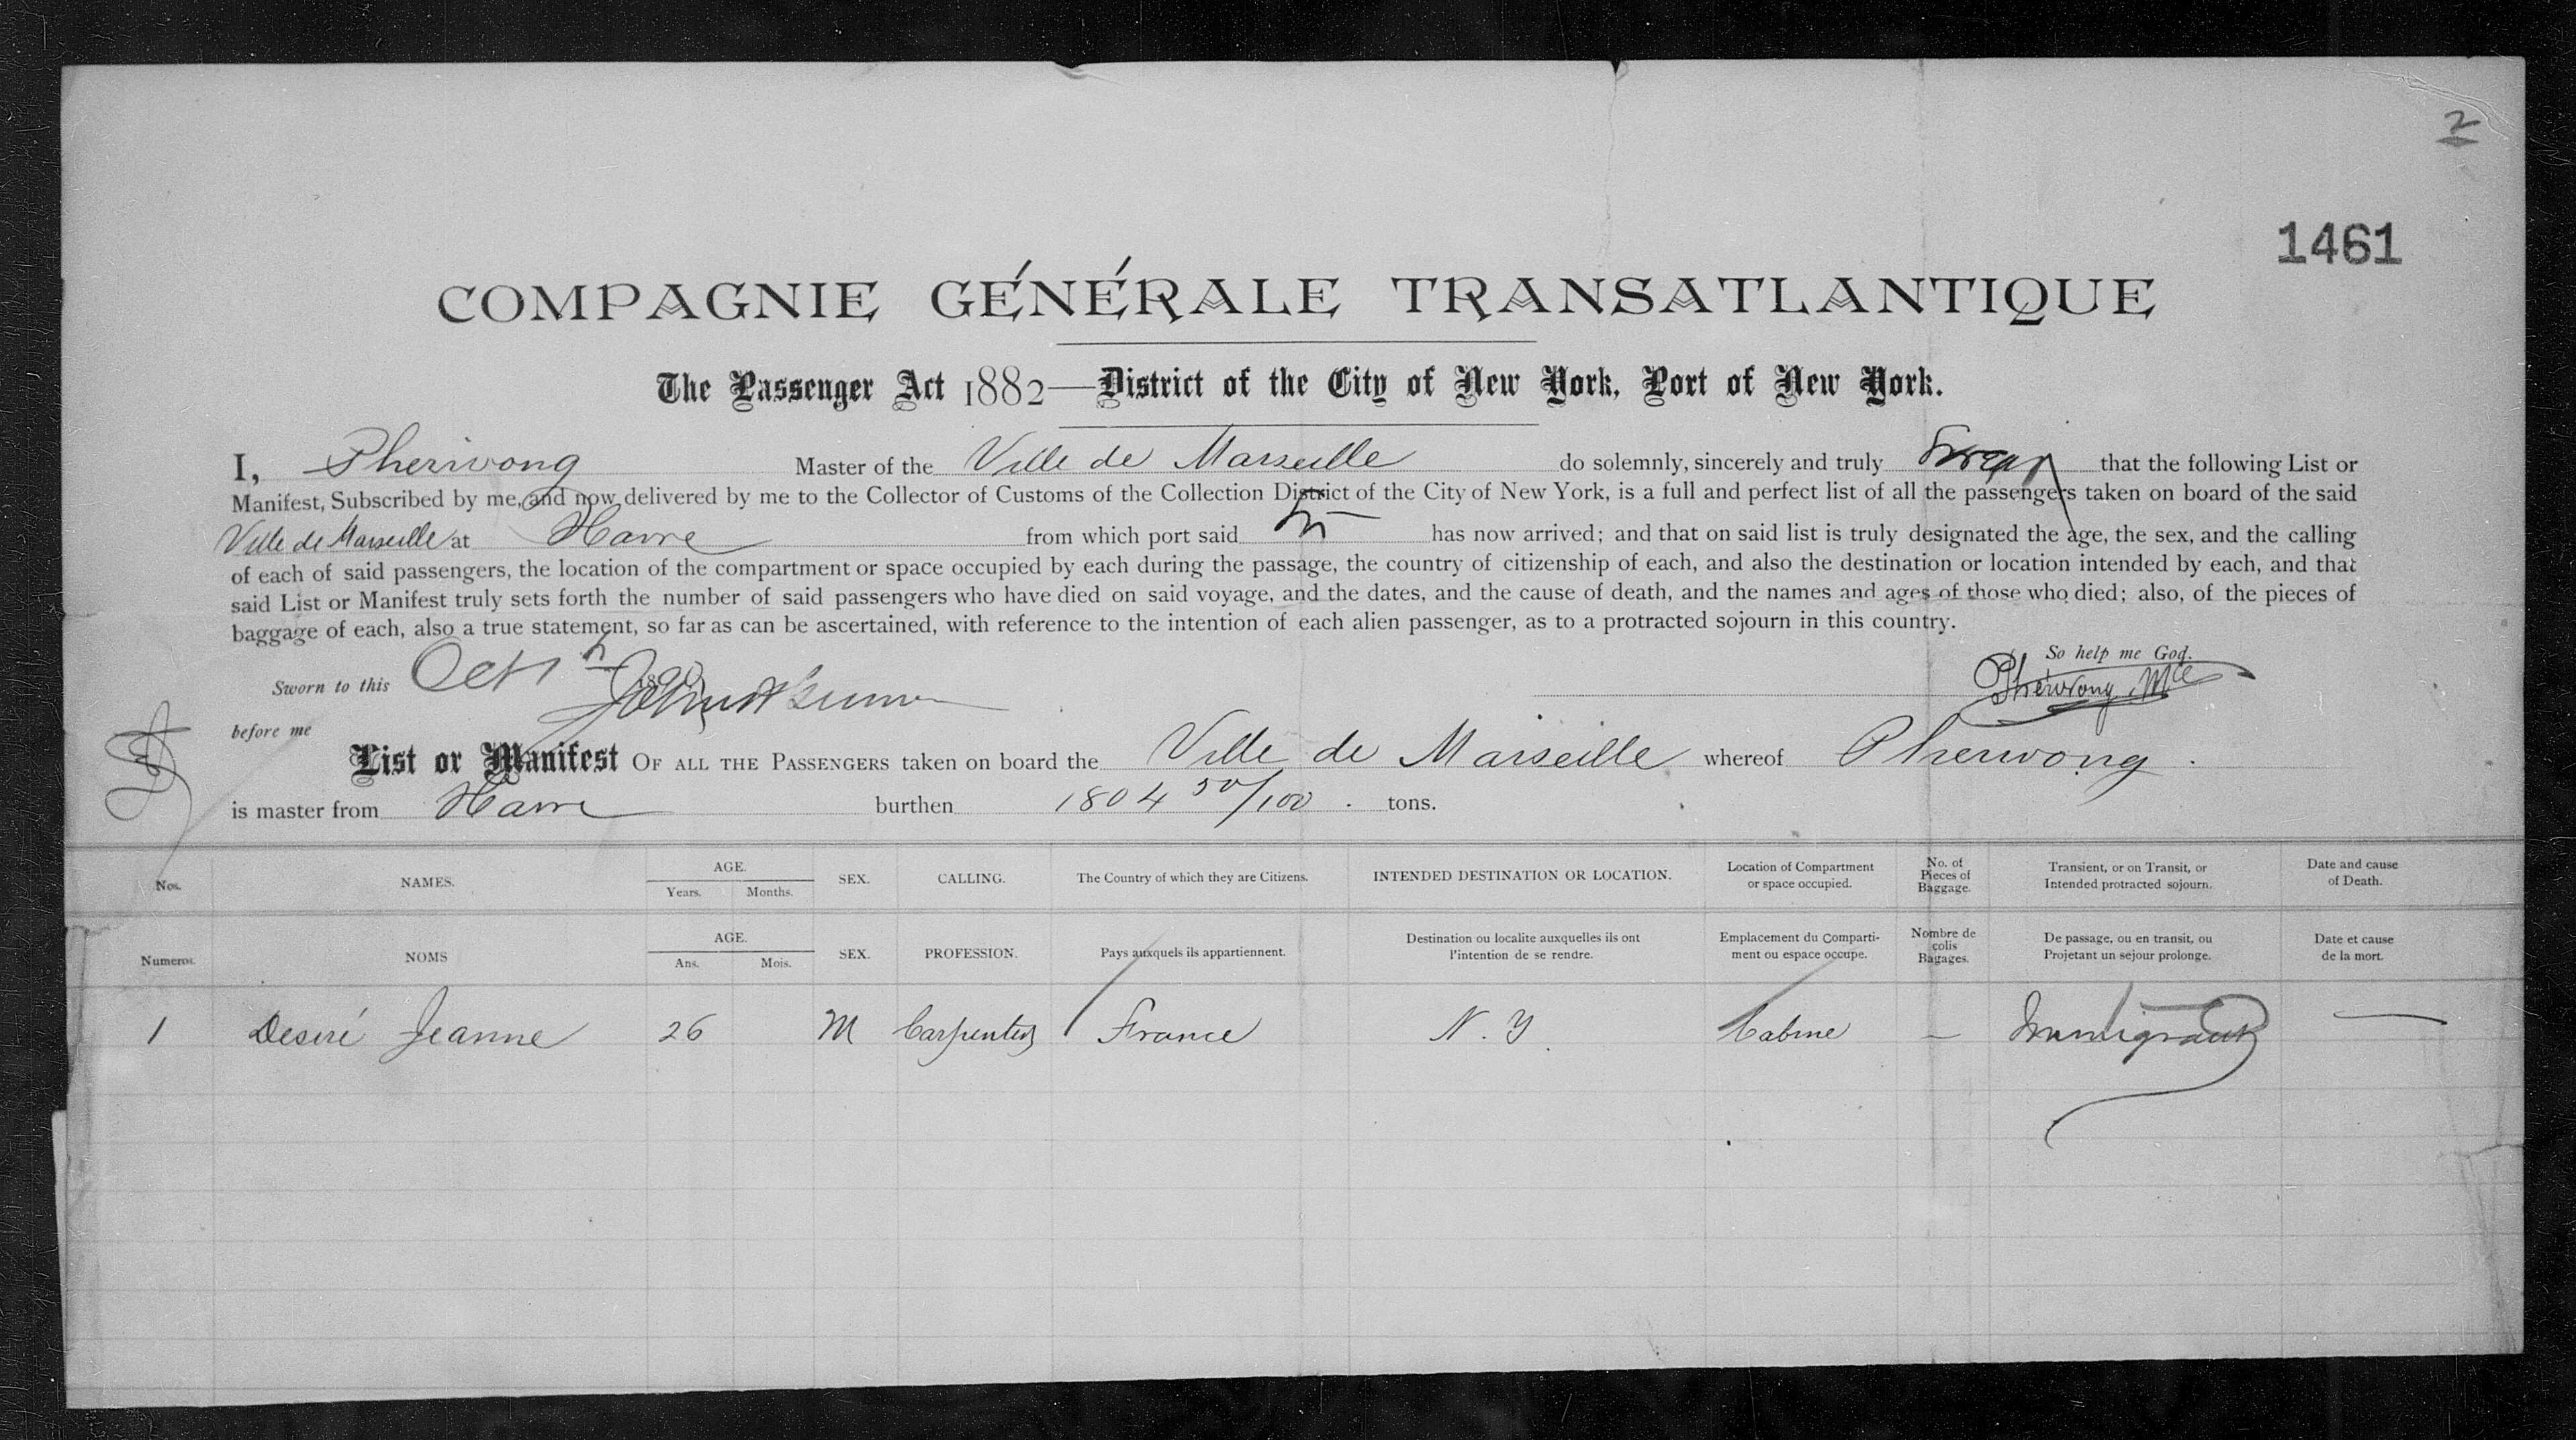 2
1461
COMPAGNIE GÉNÉRALE TRANSATLANTIQUE
The Passenger Act 1882—District of the City of New York, Port of New York.
I, Pherivong Master of the Ville de Marseille do solemnly, sincerely and truly Swear that the following List or
Manifest, Subscribed by me, and now delivered by me to the Collector of Customs of the Collection District of the City of New York, is a full and perfect list of all the passengers taken on board of the said
Ville de Marseille at Havre from which port said has now arrived; and that on said list is truly designated the age, the sex, and the calling
of each of said passengers, the location of the compartment or space occupied by each during the passage, the country of citizenship of each, and also the destination or location intended by each, and that
said List or Manifest truly sets forth the number of said passengers who have died on said voyage, and the dates, and the cause of death, and the names and ages of those who died; also, of the pieces of
baggage of each, also a true statement, so far as can be ascertained, with reference to the intention of each alien passenger, as to a protracted sojourn in this country.
So help me God.
Sworn to this Oct 1 1890
Pherivong
before me
List or Manifest OF ALL THE PASSENGERS taken on board the Ville de Marseille whereof Pherivong.
is master from Havre burthen 1804 50/100. tons.
Nos. NAMES. AGE. Years. Months. SEX. CALLING. The Country of which they are Citizens. INTENDED DESTINATION OR LOCATION. Location of Compartment or space occupied. No. of Pieces of Baggage. Transient, or on Transit, or Intended protracted sojourn. Date and cause of Death.
Numeros. NOMS AGE. Ans. Mois. SEX. PROFESSION. Pays auxquels ils appartiennent. Destination ou localite auxquelles ils ont l'intention de se rendre. Emplacement du Compartiment ou espace occupe. Nombre de colis Bagages. De passage, ou en transit, ou Projetant un sejour prolonge. Date et cause de la mort.
1 Desiré Jeanne 26 M Carpenter France N. Y. Cabine — Immigrant —